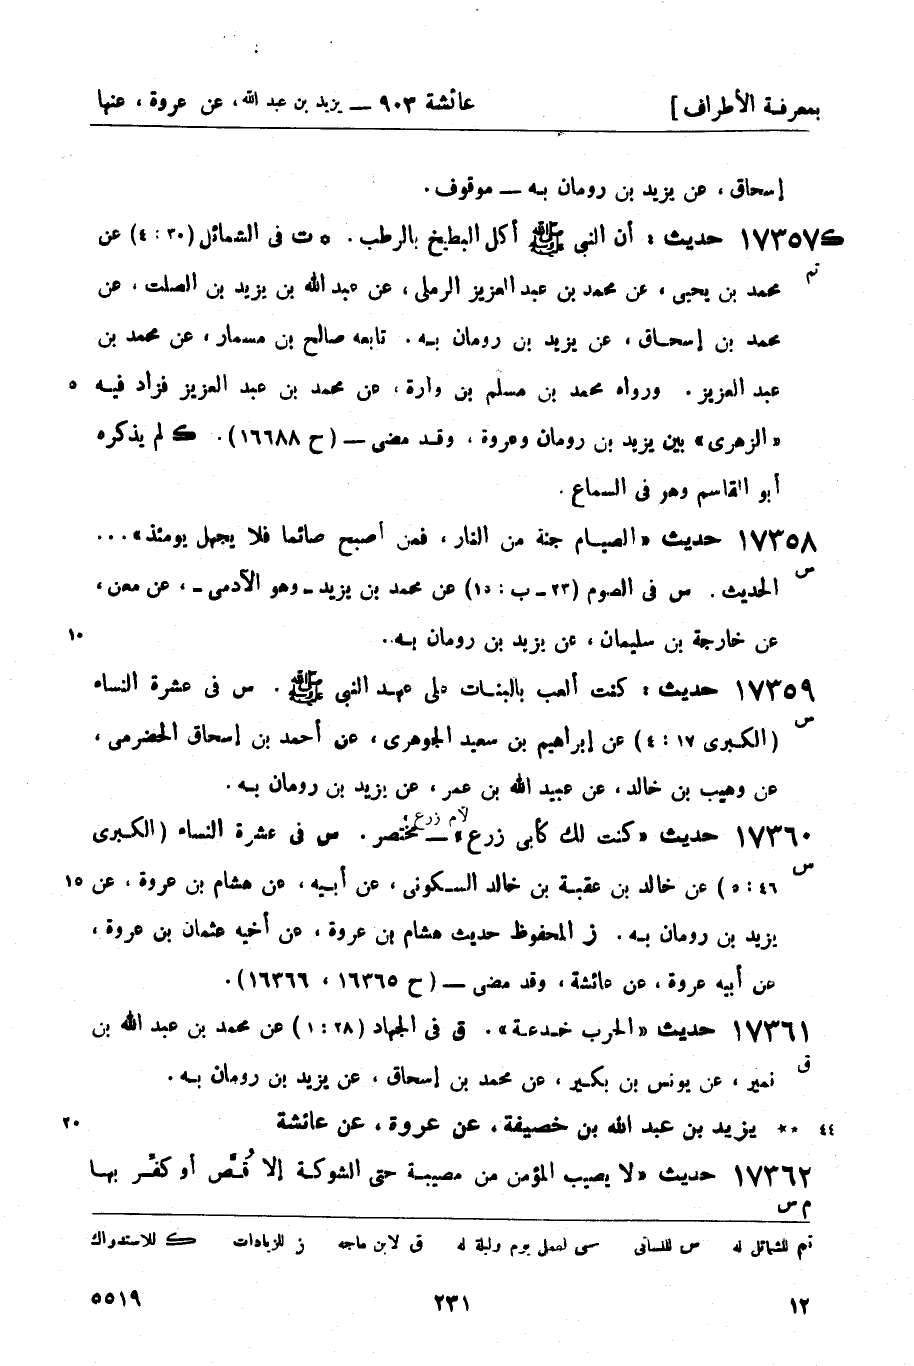 بمعرفة الأطراف ] عائشة ٩٠٣ — يزيد بن عبد الله، عن عروة، عنها
إسحاق، عن يزيد بن رومان به — موقوف.
ك ١٧٣٥٧ حديث: أن النبي ﷺ أكل البطيخ بالرطب. * ت فى الشمائل (٣٠: ٤) عن
تم
محمد بن يحيى، عن محمد بن عبد العزيز الرملى، عن عبد الله بن يزيد بن الصلت، عن
محمد بن إسحاق، عن يزيد بن رومان به. تابعه صالح بن مسمار، عن محمد بن
عبد العزيز. ورواه محمد بن مسلم بن وارة، عن محمد بن عبد العزيز فزاد فيه ٥
«الزهرى» بين يزيد بن رومان وعروة، وقد مضى — (ح ١٦٦٨٨). ك لم يذكره
أبو القاسم وهو فى السماع.
١٧٣٥٨ حديث «الصيام جنة من النار، فمن أصبح صائما فلا يجهل يومئذ»...
س
الحديث. س فى الصوم (٢٣ - ب: ١٥) عن محمد بن يزيد - وهو الآدمى -، عن معن،
عن خارجة بن سليمان، عن يزيد بن رومان به. ١٠
١٧٣٥٩ حديث: كنت ألعب بالبنات على عهد النبي ﷺ. س فى عشرة النساء
س
(الكبرى ١٧: ٤) عن إبراهيم بن سعيد الجوهرى، عن أحمد بن إسحاق الحضرمى،
عن وهيب بن خالد، عن عبيد الله بن عمر، عن يزيد بن رومان به.
لأم زرع
١٧٣٦٠ حديث «كنت لك كأبى زرع» — مختصر. س فى عشرة النساء (الكبرى
س
٤٦: ٥) عن خالد بن عقبة بن خالد السكونى، عن أبيه، عن هشام بن عروة، عن ١٥
يزيد بن رومان به. ز المحفوظ حديث هشام بن عروة، عن أخيه عثمان بن عروة،
عن أبيه عروة، عن عائشة، وقد مضى — (ح ١٦٣٦٥، ١٦٣٦٦).
١٧٣٦١ حديث «الحرب خدعة». ق فى الجهاد (٢٨: ١) عن محمد بن عبد الله بن
ق
نمير، عن يونس بن بكير، عن محمد بن إسحاق، عن يزيد بن رومان به.
٤٤ ** يزيد بن عبد الله بن خصيفة، عن عروة، عن عائشة ٢٠
١٧٣٦٢ حديث «لا يصيب المؤمن من مصيبة حتى الشوكة إلا قُصَّ أو كفِّر بها
م س
تم للشمائل له س للنسائى سى لعمل يوم وليلة له ق لابن ماجه ز للزيادات ك للاستدراك
١٢ ٢٣١ ٥٥١٩